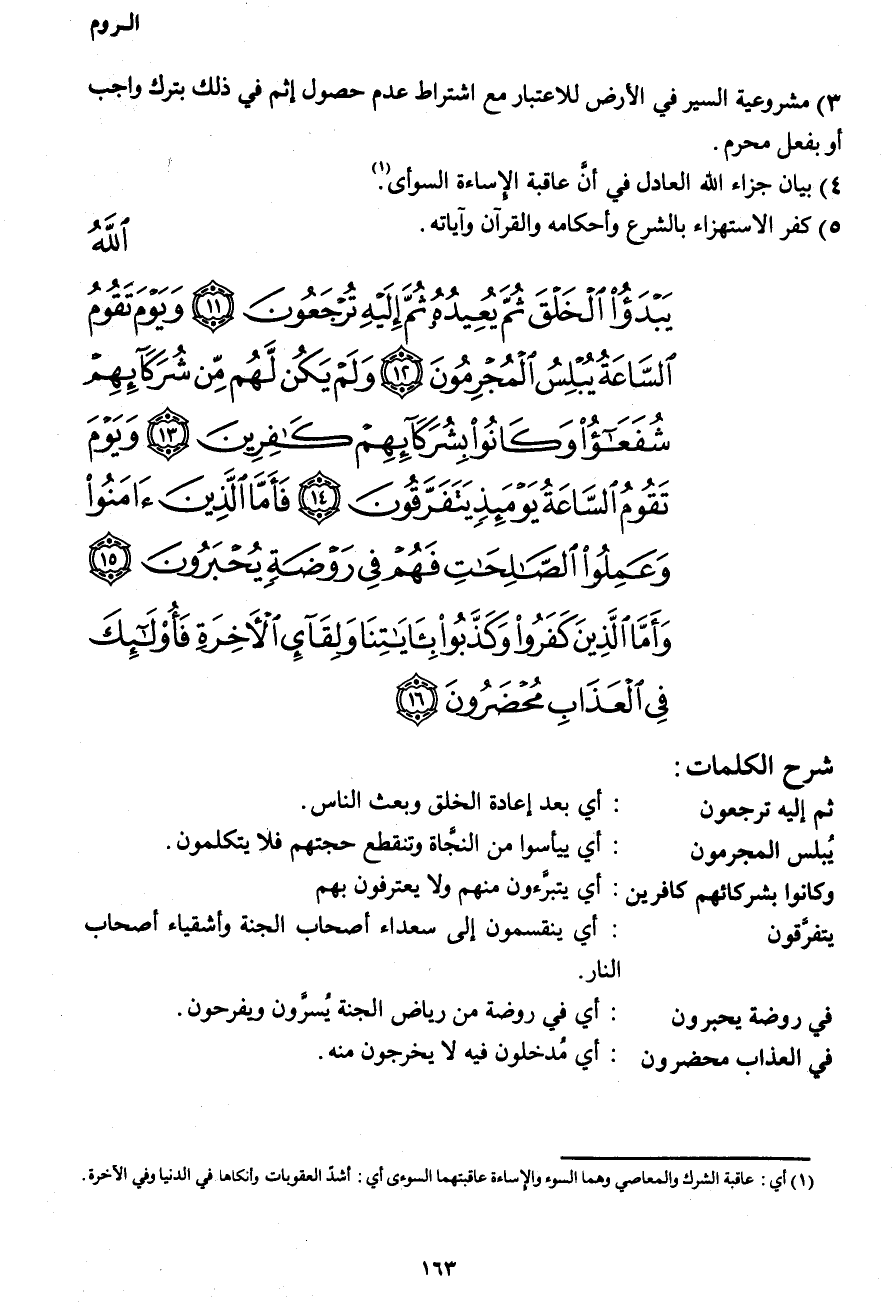 الـروم
٣) مشروعية السير في الأرض للاعتبار مع اشتراط عدم حصول إثم في ذلك بترك واجب
أو بفعل محرم .
٤) بيان جزاء الله العادل في أنَّ عاقبة الإساءة السوأى(١).
٥) كفر الاستهزاء بالشرع وأحكامه والقرآن وآياته .
ٱللَّهُ
يَبْدَؤُا۟ ٱلْخَلْقَ ثُمَّ يُعِيدُهُۥ ثُمَّ إِلَيْهِ تُرْجَعُونَ ١١ وَيَوْمَ تَقُومُ
ٱلسَّاعَةُ يُبْلِسُ ٱلْمُجْرِمُونَ ١٢ وَلَمْ يَكُن لَّهُم مِّن شُرَكَآئِهِمْ
شُفَعَـٰٓؤُا۟ وَكَانُوا۟ بِشُرَكَآئِهِمْ كَـٰفِرِينَ ١٣ وَيَوْمَ
تَقُومُ ٱلسَّاعَةُ يَوْمَئِذٍ يَتَفَرَّقُونَ ١٤ فَأَمَّا ٱلَّذِينَ ءَامَنُوا۟
وَعَمِلُوا۟ ٱلصَّـٰلِحَـٰتِ فَهُمْ فِى رَوْضَةٍ يُحْبَرُونَ ١٥
وَأَمَّا ٱلَّذِينَ كَفَرُوا۟ وَكَذَّبُوا۟ بِـَٔايَـٰتِنَا وَلِقَآئِ ٱلْـَٔاخِرَةِ فَأُو۟لَـٰٓئِكَ
فِى ٱلْعَذَابِ مُحْضَرُونَ ١٦
شرح الكلمات :
ثم إليه ترجعون : أي بعد إعادة الخلق وبعث الناس .
يُبلس المجرمون : أي ييأسوا من النجَّاة وتنقطع حجتهم فلا يتكلمون .
وكانوا بشركائهم كافرين : أي يتبرَّءون منهم ولا يعترفون بهم
يتفرَّقون : أي ينقسمون إلى سعداء أصحاب الجنة وأشقياء أصحاب
النار.
في روضة يحبرون : أي في روضة من رياض الجنة يُسرَّون ويفرحون .
في العذاب محضرون : أي مُدخلون فيه لا يخرجون منه .
(١) أي : عاقبة الشرك والمعاصي وهما السوء والإساءة عاقبتهما السوءى أي : أشدّ العقوبات وأنكاها في الدنيا وفي الآخرة .
١٦٣